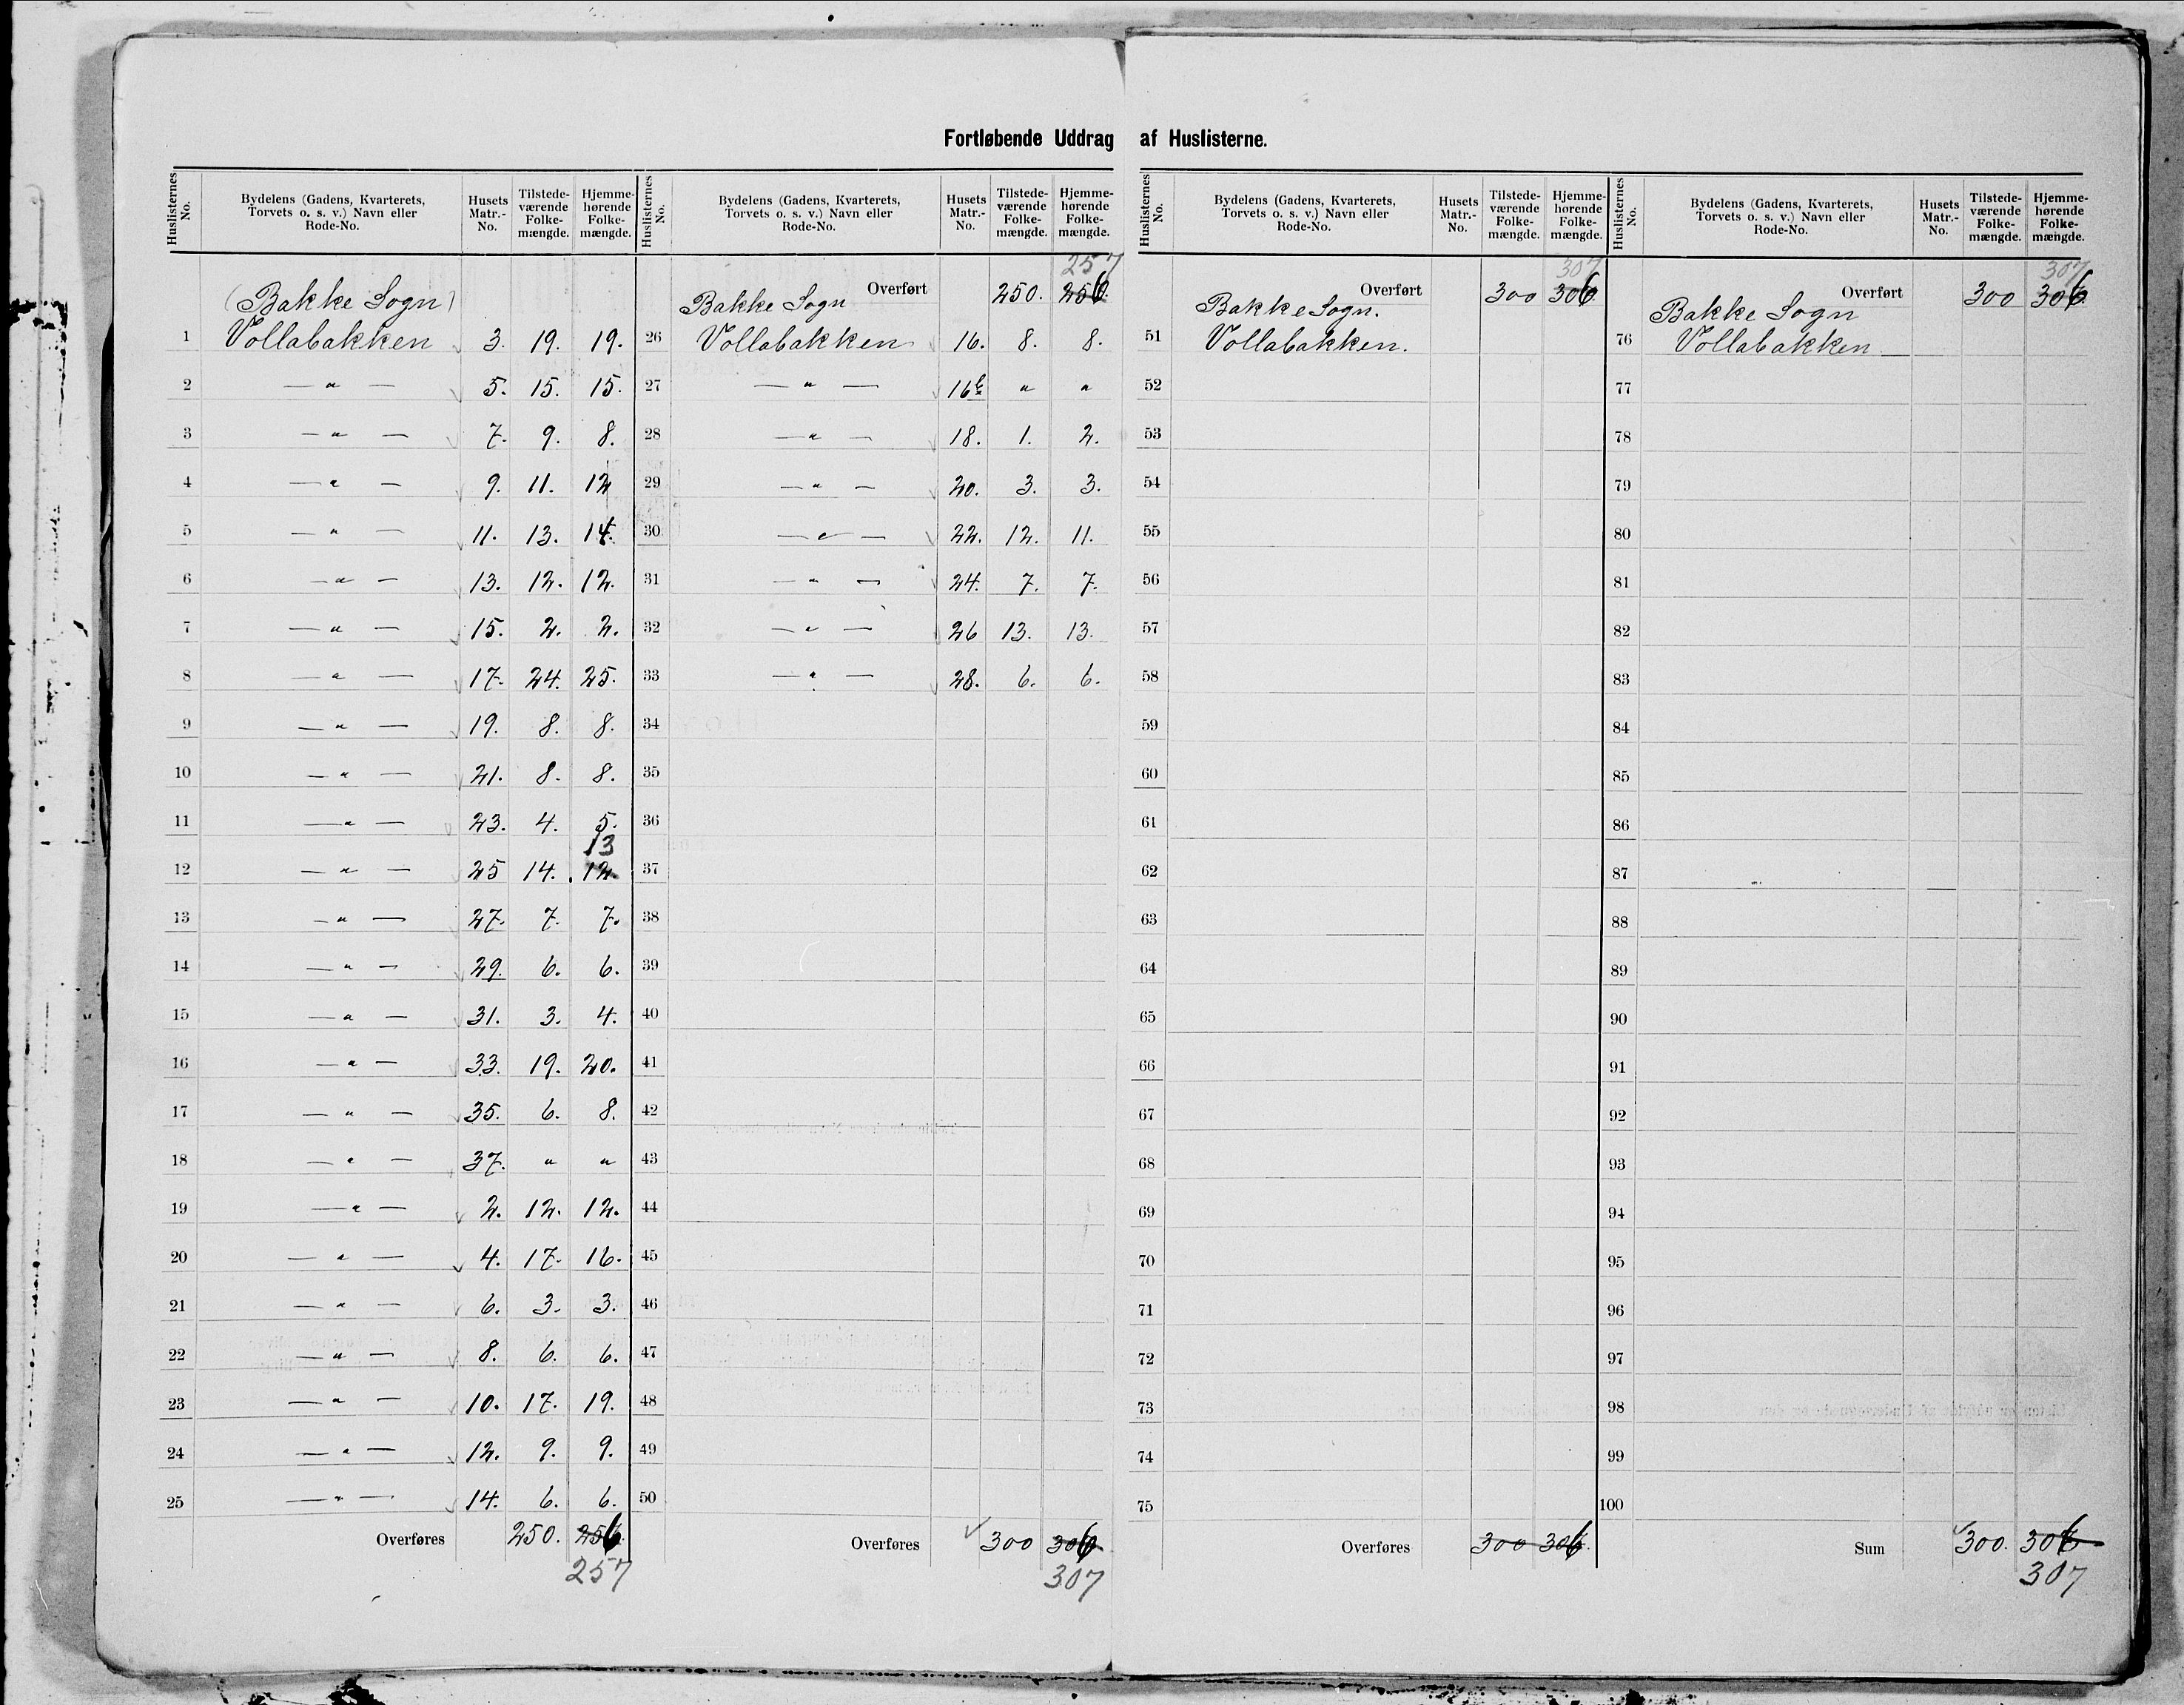 Fortløbende Uddrag af Huslisterne.
Huslisternes No. Bydelens (Gadens, Kvarterets, Torvets o. s. v.) Navn eller Rode-No. Husets Matr.-No. Tilstede-værende Folke-mængde. Hjemme-hørende Folke-mængde.
(Bakke Sogn)
1 Vollabakken 3. 19. 19.
2 — " — 5. 15. 15.
3 — " — 7. 9. 8.
4 — " — 9. 11. 12
5 — " — 11. 13. 14.
6 — " — 13. 12. 12.
7 — " — 15. 2. 2.
8 — " — 17. 24. 25.
9 — " — 19. 8. 8.
10 — " — 21. 8. 8.
11 — " — 23. 4. 5.
13
12 — " — 25 14. 12.
13 — " — 27. 7. 7.
14 — " — 29. 6. 6.
15 — " — 31. 3. 4.
16 — " — 33. 19. 20.
17 — " — 35. 6. 8.
18 — " — 37. " "
19 — " — 2. 12. 12.
20 — " — 4. 17. 16.
21 — " — 6. 3. 3.
22 — " — 8. 6. 6.
23 — " — 10. 17. 19.
24 — " — 12. 9. 9.
25 — " — 14. 6. 6.
Overføres 250. 256.
257
Huslisternes No. Bydelens (Gadens, Kvarterets, Torvets o. s. v.) Navn eller Rode-No. Husets Matr.-No. Tilstede-værende Folke-mængde. Hjemme-hørende Folke-mængde.
257
Overført 250. 256.
Bakke Sogn
26 Vollabakken 16. 8. 8.
27 — " — 16b " "
28 — " — 18. 1. 2.
29 — " — 20. 3. 3.
30 — " — 22. 12. 11.
31 — " — 24. 7. 7.
32 — " — 26 13. 13.
33 — " — 28. 6. 6.
34
35
36
37
38
39
40
41
42
43
44
45
46
47
48
49
50
Overføres 300 306.
307
Huslisternes No. Bydelens (Gadens, Kvarterets, Torvets o. s. v.) Navn eller Rode-No. Husets Matr.-No. Tilstede-værende Folke-mængde. Hjemme-hørende Folke-mængde.
307
Overført 300 306
Bakke Sogn.
51 Vollabakken.
52
53
54
55
56
57
58
59
60
61
62
63
64
65
66
67
68
69
70
71
72
73
74
75
Overføres 300 306.
Huslisternes No. Bydelens (Gadens, Kvarterets, Torvets o. s. v.) Navn eller Rode-No. Husets Matr.-No. Tilstede-værende Folke-mængde. Hjemme-hørende Folke-mængde.
307
Overført 300 306
Bakke Sogn
76 Vollabakken.
77
78
79
80
81
82
83
84
85
86
87
88
89
90
91
92
93
94
95
96
97
98
99
100
Sum 300. 306
307